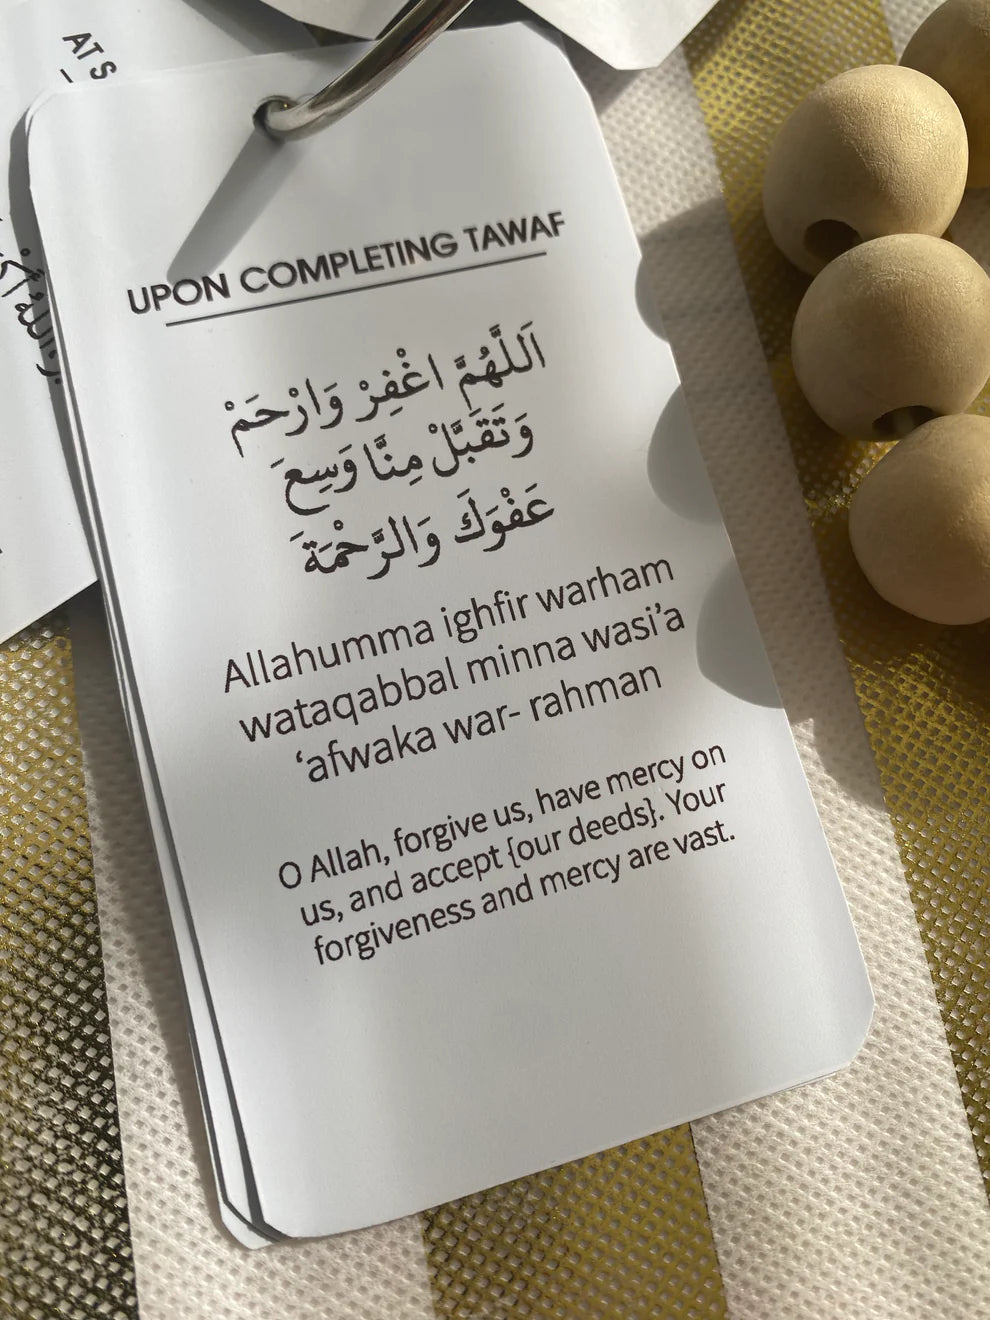 AT S
UPON COMPLETING TAWAF
اَللَّهُمَّ اغْفِرْ وَارْحَمْ
وَتَقَبَّلْ مِنَّا وَسِعَ
عَفْوَكَ وَالرَّحْمَةَ
Allahumma ighfir warham
wataqabbal minna wasi’a
‘afwaka war- rahman
O Allah, forgive us, have mercy on
us, and accept {our deeds}. Your
forgiveness and mercy are vast.